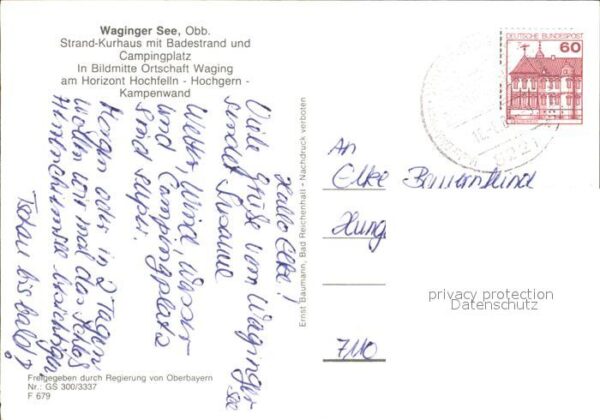 Waginger See, Obb.
Strand-Kurhaus mit Badestrand und
Campingplatz
In Bildmitte Ortschaft Waging
am Horizont Hochfelln - Hochgern -
Kampenwand
Hallo Elke!
Viele Grüße vom Waginger
See
sendet Susanne
Wetter, Wind, Wasser
und Campingplatz
sind super.
Morgen oder in 2 Tagen
wollen wir mal das Schloß
Herrenchiemsee besichtigen
Tschau bis bald!
Freigegeben durch Regierung von Oberbayern
Nr.: GS 300/3337
F 679
Ernst Baumann, Bad Reichenhall - Nachdruck verboten
DEUTSCHE BUNDESPOST
60
8221
An
Elke
Hung
privacy protection
Datenschutz
7110